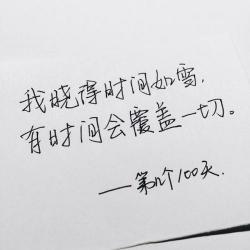 我晓得时间如雪,
有时间会覆盖一切。
——第N个100天.